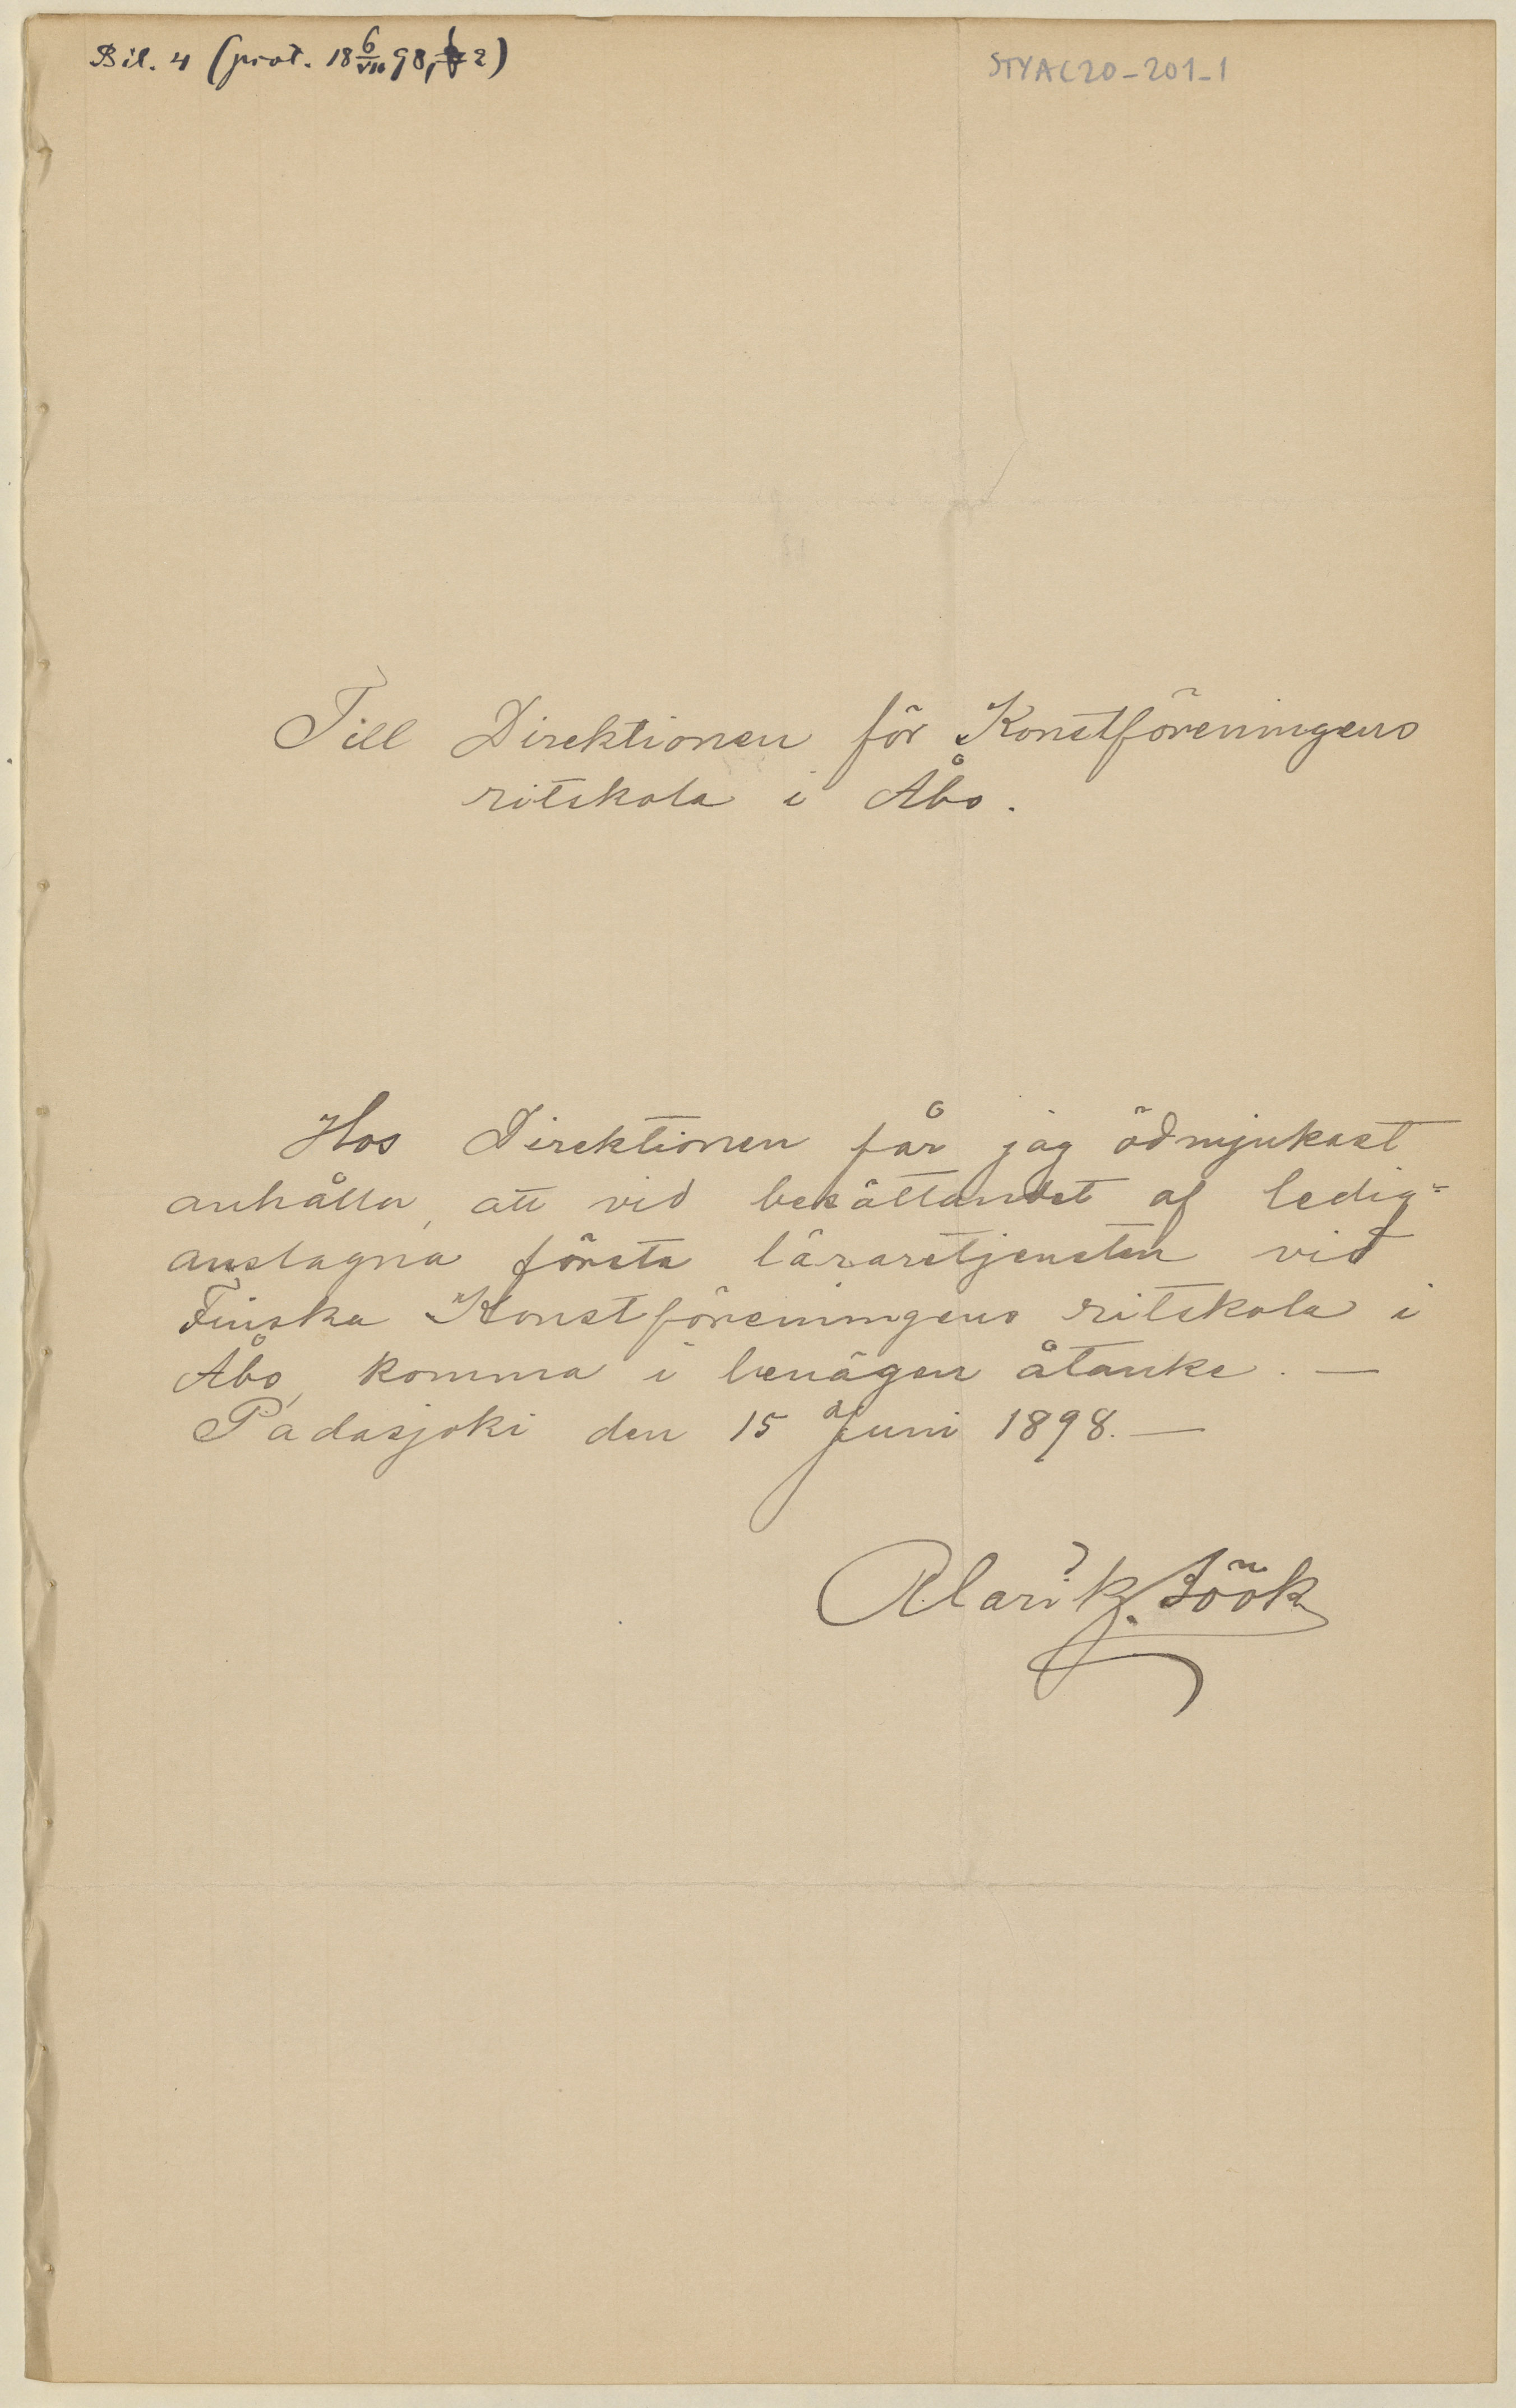 Bil. 4 (prot. 18 6/VII 98, § 2)
STYAC20-201-1
Till Direktionen för Konstföreningens
ritskola i Åbo.
Hos Direktionen får jag ödmjukast
anhålla, att vid besättandet af ledig=
anslagna första läraretjensten vid
Finska Konstföreningens ritskola i
Åbo, komma i benägen åtanke. —
Padasjoki den 15 Juni 1898. —
Alarik Böök